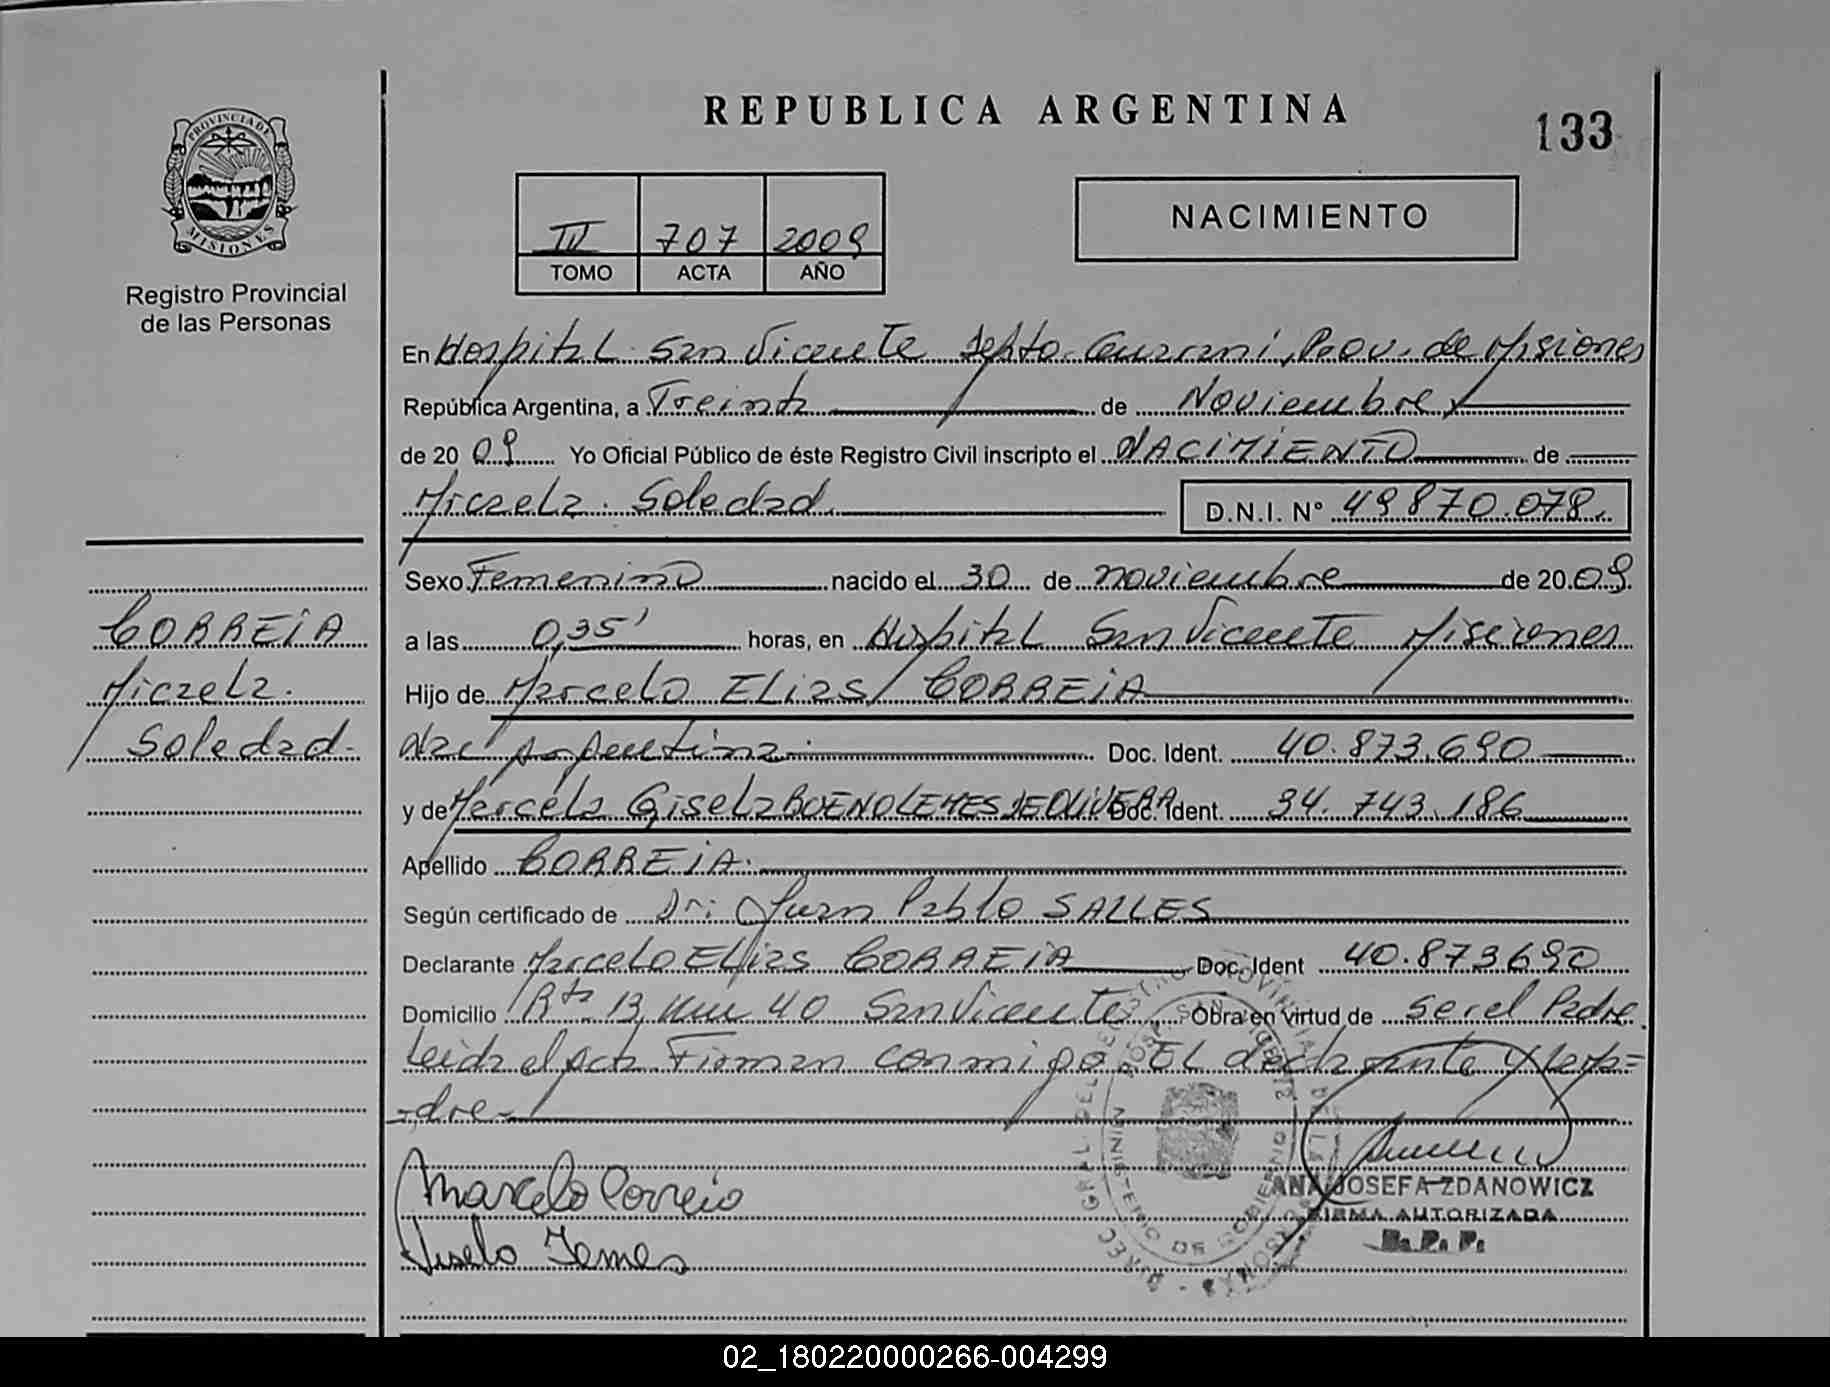 REPUBLICA ARGENTINA
133
PROVINCIA DE
MISIONES
Registro Provincial
de las Personas
707 2009
TOMO ACTA AÑO
NACIMIENTO
En Hospital San Vicente Depto. Guarani, Prov. de Misiones
República Argentina, a Treinta de Noviembre
de 20 09 Yo Oficial Público de éste Registro Civil inscripto el NACIMIENTO de
Micaela Soledad. D.N.I. N° 49870.078.
Sexo Femenino nacido el 30 de noviembre de 20 09
CORREIA
a las 0,35' horas, en Hospital San Vicente Misiones
Micaela.
Hijo de Marcelo Elias CORREIA
Soledad.
nac argentina Doc. Ident. 40.873.690
y de Marcela Gisela BUENO LEMES DE OLIVERA Doc. Ident. 34.743.186
Apellido CORREIA.
Según certificado de Dr: Juan Pablo SALLES
Declarante Marcelo Elias CORREIA Doc. Ident 40.873690
Domicilio Rta 13, km 40 San Vicente Obra en virtud de ser el Padre.
Leida el acta Firman conmigo EL declarante y la ma=
=dre=
Marcelo Correia
Lemes
ANA JOSEFA ZDANOWICZ
FIRMA AUTORIZADA
R. P. P.
02_180220000266-004299